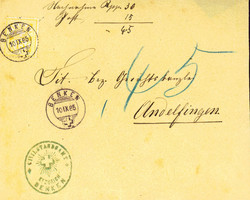 Nachnahme Rpp. 30
Post. 15
45
BENKEN
10 IX 85
145
BENKEN
10 IX 85
Tit. Bez. Gerichtskanzlei
Andelfingen.
CIVILSTANDSAMT
BENKEN